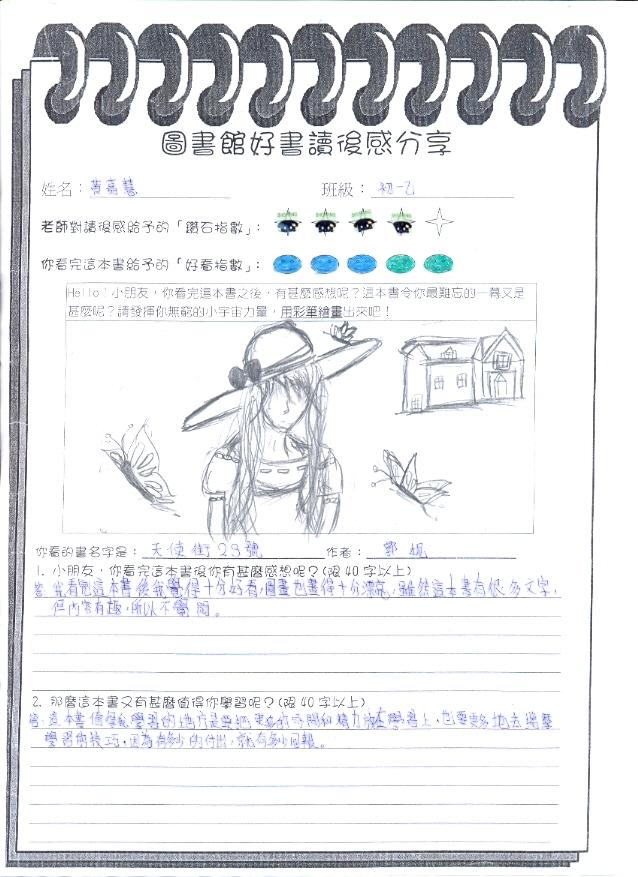 圖書館好書讀後感分享
姓名：黃嘉慧 班級：初一乙
老師對讀後感給予的「鑽石指數」：
你看完這本書給予的「好看指數」：
Hello！小朋友，你看完這本書之後，有甚麼感想呢？這本書令你最難忘的一幕又是
甚麼呢？請發揮你無窮的小宇宙力量，用彩筆繪畫出來吧！
你看的書名字是：天使街23號 作者：郭妮
1. 小朋友，你看完這本書後你有甚麼感想呢？(限40字以上)
答：我看完這本書後我覺得十分好看，圖畫也畫得十分漂亮，雖然這本書有很多文字，
但內容有趣，所以不覺悶。
2. 那麼這本書又有甚麼值得你學習呢？(限40字以上)
答：這本書值得我學習的地方是要把更多的時間和精力放在學習上，也要更多地去揣摩
學習的技巧，因為有多少的付出，就有多少回報。